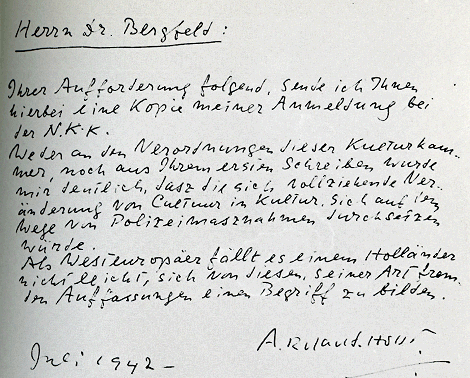 Herrn Dr. Bergfeld:
Ihrer Aufforderung folgend, sende ich Ihnen
hierbei eine Kopie meiner Anmeldung bei
der N.K.K.
Weder an den Verordnungen dieser Kulturkam-
mer, noch aus Ihrem ersten Schreiben wurde
mir deutlich, dasz die sich vollziehende Ver-
änderung von Cultuur in Kultur, sich auf dem
Wege von Polizeimasznahmen durchsetzen
würde.
Als Westeuropäer fällt es einem Holländer
nicht leicht, sich von diesen, seiner Art frem-
den Auffassungen einen Begriff zu bilden.
A. Roland. Holst
Juli 1942 -